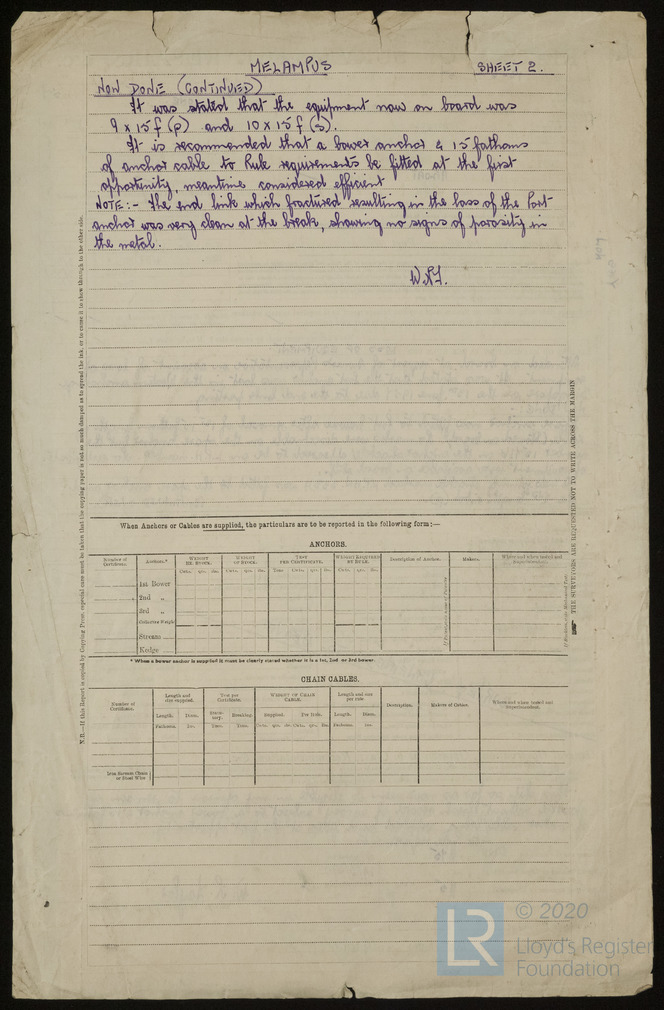 MELAMPUS SHEET 2.
NOW DONE (CONTINUED)
It was stated that the equipment now on board was
9 x 15 f (p) and 10 x 15 f (s).
It is recommended that a bower anchor & 15 fathoms
of anchor cable to Rule requirements be fitted at the first
opportunity, meantime considered efficient
NOTE:- The end link which fractured resulting in the loss of the Port
anchor was very clean at the break, showing no signs of porosity in
the metal.
N.B.—If this Report is copied by Copying Press, especial care must be taken that the copying paper is not so much damped as to spread the ink, or to cause it to show through to the other side.
THE SURVEYORS ARE REQUESTED NOT TO WRITE ACROSS THE MARGIN
When Anchors or Cables are supplied, the particulars are to be reported in the following form:—
ANCHORS.
Number of Certificate. Anchors.* WEIGHT EX. STOCK. WEIGHT OF STOCK. TEST PER CERTIFICATE. WEIGHT REQUIRED BY RULE. Description of Anchor. Makers. Where and when tested and Superintendent.
Cwts. qrs. lbs. Cwts. qrs. lbs. Tons. Cwts. qrs. lbs. Cwts. qrs. lbs.
1st Bower
2nd „
3rd „
Collective Weight
Stream
Kedge
* When a bower anchor is supplied it must be clearly stated whether it is a 1st, 2nd or 3rd bower.
CHAIN CABLES.
Number of Certificate. Length and size supplied. Test per Certificate. WEIGHT OF CHAIN CABLE. Length and size per rule. Description. Makers of Cables. Where and when tested and Superintendent.
Length. Diam. Breaking. Supplied. Per Rule. Length. Diam.
Fathoms. Ins. Tons. Tons. Cwts. qrs. lbs. Cwts. qrs. lbs. Fathoms. Ins.
Iron Stream Chain or Steel Wire
LR
© 2020
Lloyd's Register
Foundation